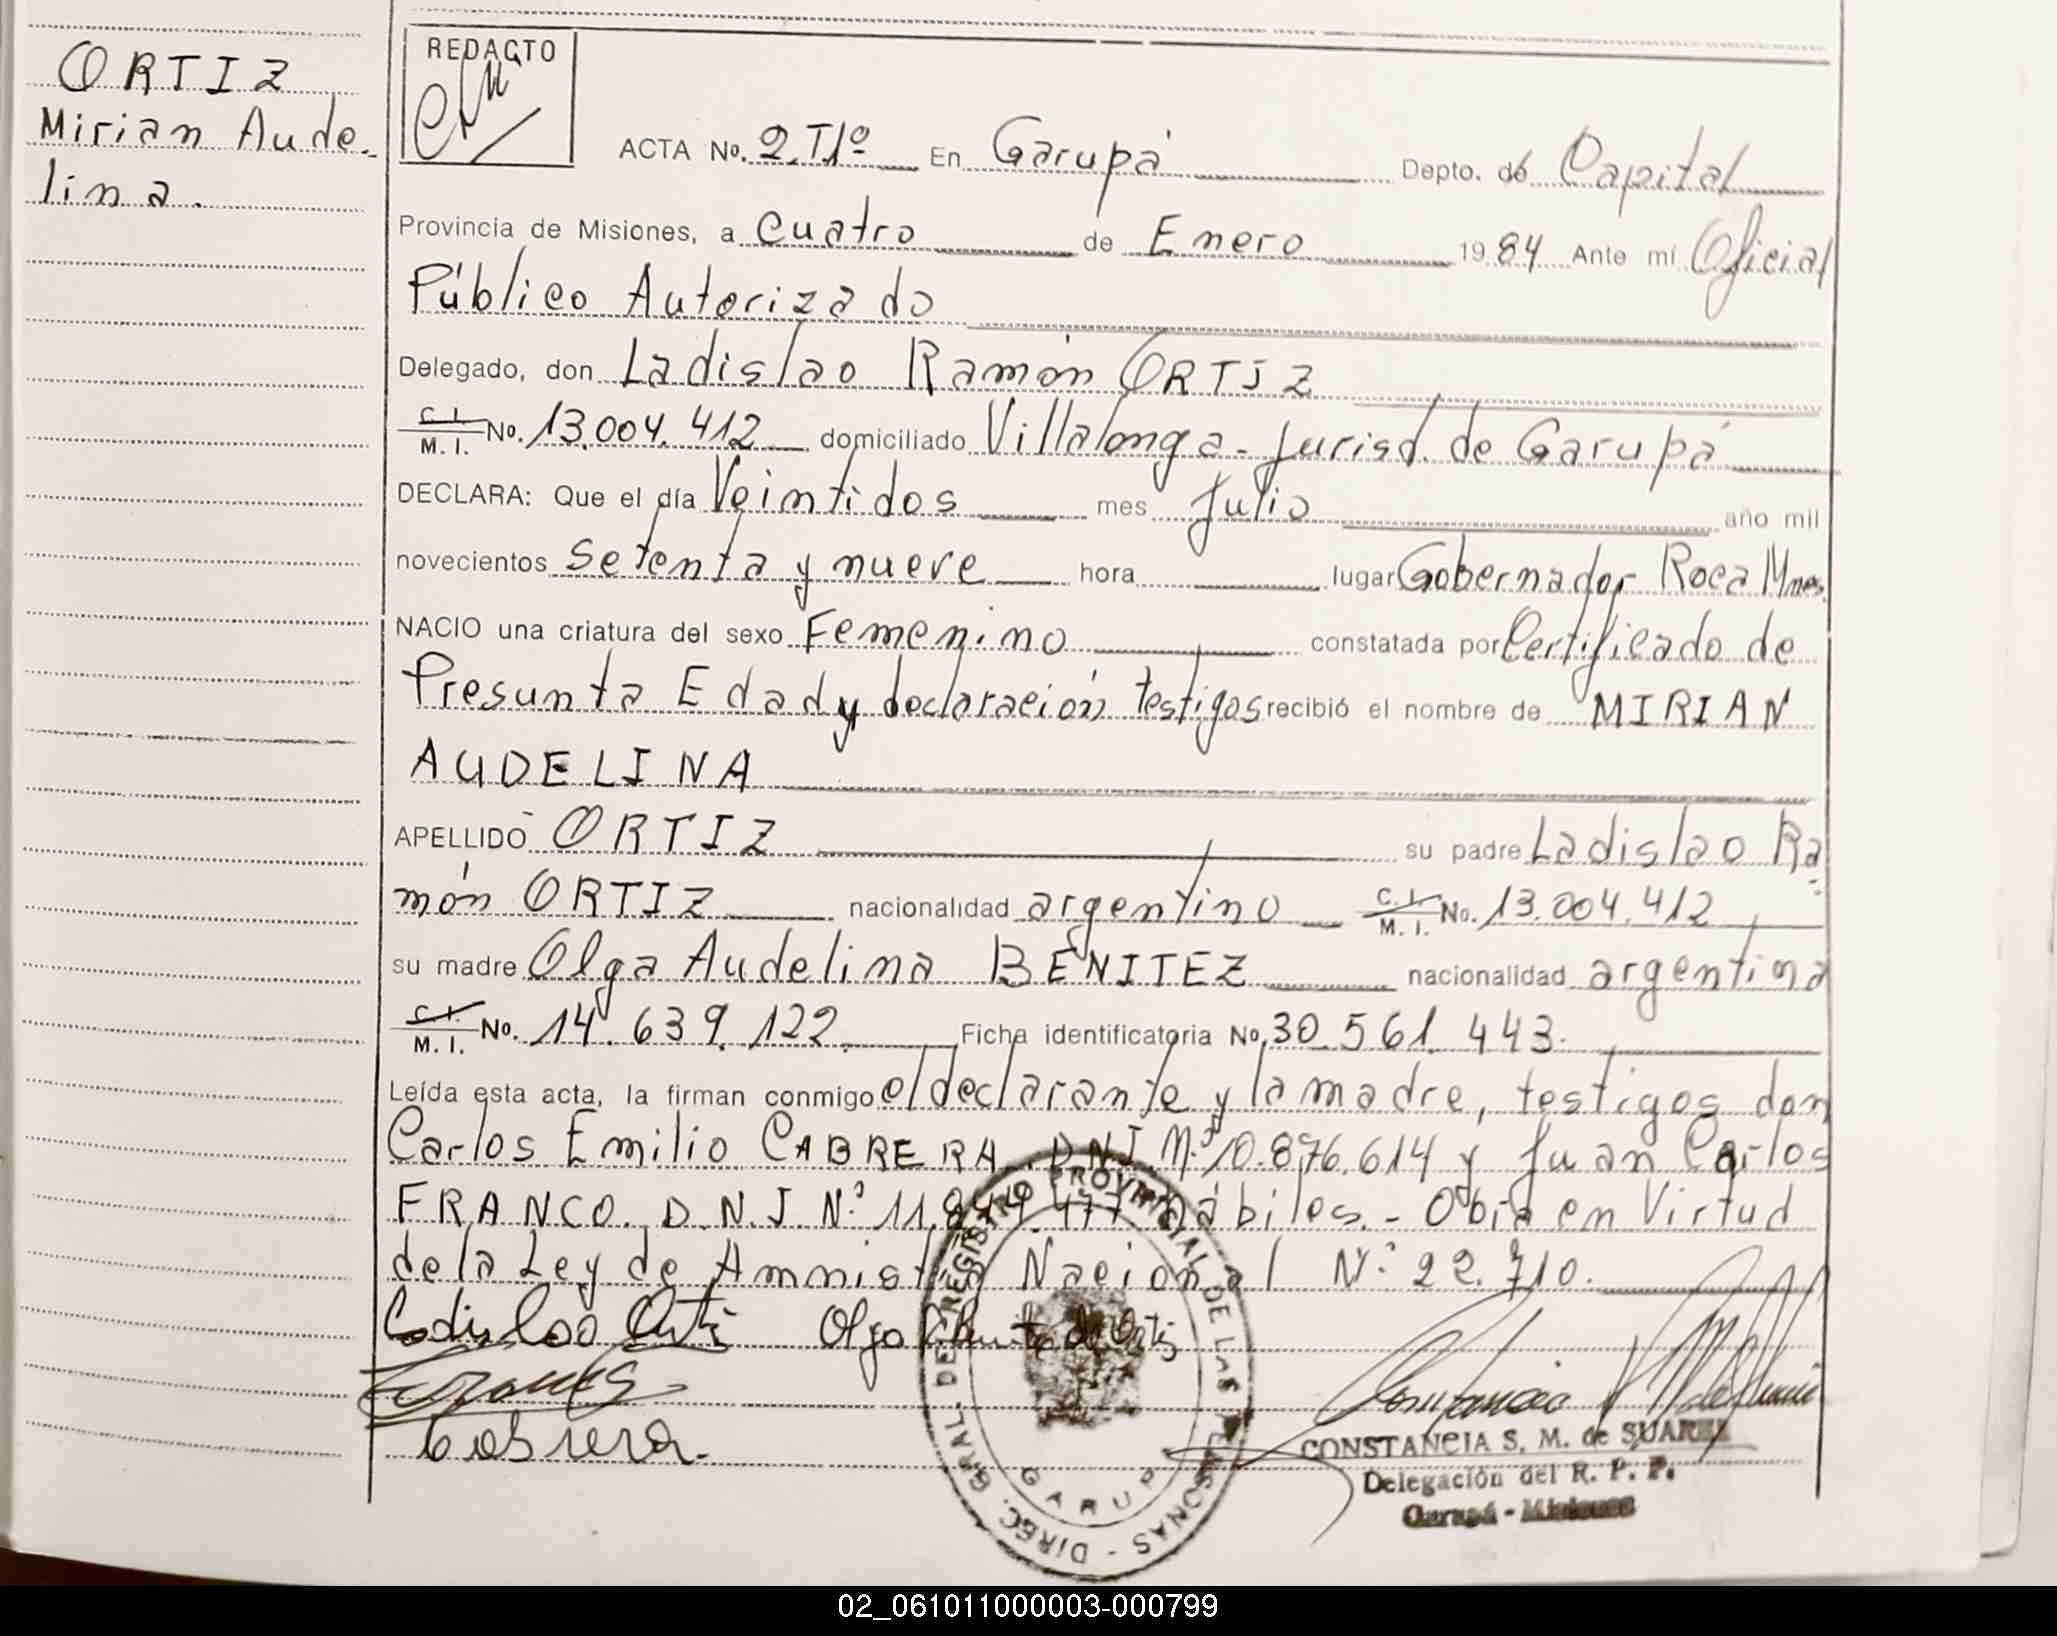 ORTIZ
Mirian Aude-
lina.
REDACTO
ACTA No. 2 T1º En Garupá Depto. de Capital
Provincia de Misiones, a cuatro de Enero 1984 Ante mi Oficial
Público Autorizado
Delegado, don Ladislao Ramón ORTIZ
C. I.
M. I. No. 13.004.412 domiciliado Villalonga- Jurisd. de Garupá
DECLARA: Que el día Veintidos mes Julio año mil
novecientos Setenta y nueve hora lugar Gobernador Roca Mnes.
NACIO una criatura del sexo Femenino constatada por Certificado de
Presunta Edad y declaración testigos recibió el nombre de MIRIAN
AUDELINA
APELLIDO ORTIZ su padre Ladislao Ra
món ORTIZ nacionalidad argentino C. I. M. I. No. 13.004.412
su madre Olga Audelina BENITEZ nacionalidad argentina
C. I.
M. I. No. 14.639.122. Ficha identificatoria No. 30.561.443.
Leída esta acta, la firman conmigo el declarante y la madre, testigos don
Carlos Emilio CABRERA. D.N.I. Nº 10.876.614 y Juan Carlos
FRANCO. D.N.I. Nº 11. 477 hábiles.- Obra en Virtud
de la Ley de Amnistía Nacional Nº 22.710.
Ladislao Orti Olga de Ortiz
Cabrera.
DIREC. GRAL. DE REGISTRO PROVINCIAL DE LAS PERSONAS -
GARUPA
CONSTANCIA S. M. de SUAREZ
Delegación del R. P. P.
Garupá - Misiones
02_061011000003-000799